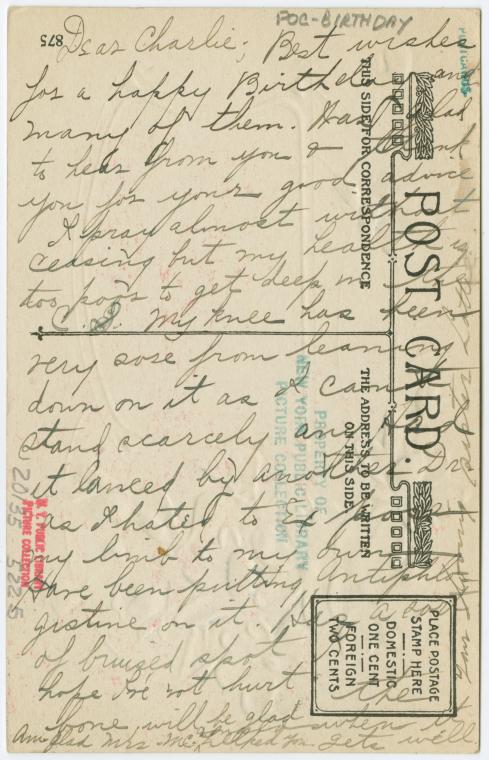 POC-BIRTHDAY
875
Dear Charlie; Best wishes
for a happy Birthday and
many of them. Was glad
to hear from you &
you for your good advice
I pray almost without
ceasing but my health is
too poor to get deep in
C. S. My knee has been
very sore from leaning
down on it as I can
stand scarcely and had
it lanced by another Dr.
as I hated to
my limb to my own
have been putting Antiphlo
gistine on it. Was a
of bruized spot
hope I've not hurt the
bone, will be glad when it
gets well
Am glad Mrs. Mc. helped you
POST CARD.
THIS SIDE FOR CORRESPONDENCE
THE ADDRESS TO BE WRITTEN
ON THIS SIDE
PLACE POSTAGE
STAMP HERE
DOMESTIC
ONE CENT
FOREIGN
TWO CENTS
PROPERTY OF
NEW YORK PUBLIC LIBRARY
PICTURE COLLECTION
N. Y. PUBLIC LIBRARY
PICTURE COLLECTION
POSTCARDS